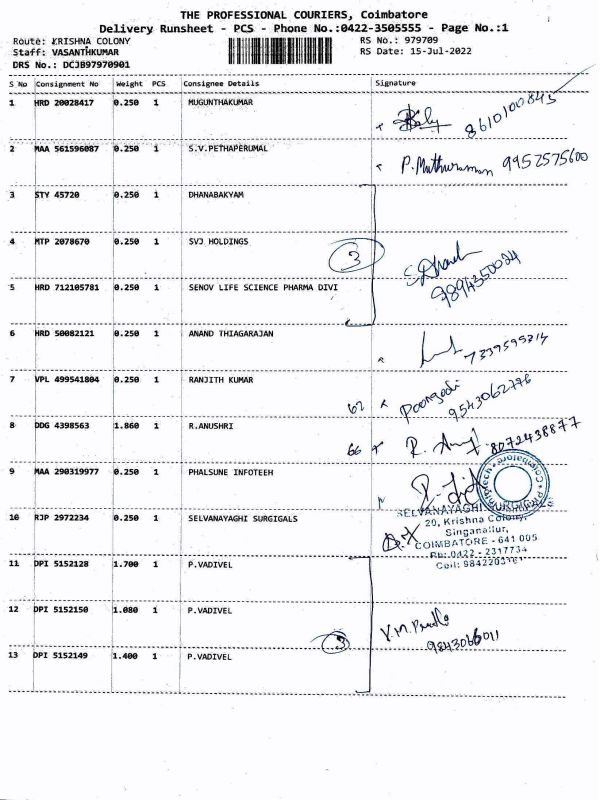 THE PROFESSIONAL COURIERS, Coimbatore
Delivery Runsheet - PCS - Phone No.:0422-3505555 - Page No.:1
Route: KRISHNA COLONY RS No.: 979709
Staff: VASANTHKUMAR RS Date: 15-Jul-2022
DRS No.: DCJB97970901
S No Consignment No Weight PCS Consignee Details Signature
1 HRD 20028417 0.250 1 MUGUNTHAKUMAR 8610100845
2 MAA 561596087 0.250 1 S.V.PETHAPERUMAL P. Muthuraman 9952575600
3 STY 45720 0.250 1 DHANABAKYAM
4 MTP 2078670 0.250 1 SVJ HOLDINGS 3
9894350024
5 HRD 712105781 0.250 1 SENOV LIFE SCIENCE PHARMA DIVI
6 HRD 50082121 0.250 1 ANAND THIAGARAJAN
7 VPL 499541804 0.250 1 RANJITH KUMAR 62 Poongodi
9543062776
8 DDG 4398563 1.860 1 R.ANUSHRI 66 8072438877
9 MAA 290319977 0.250 1 PHALSUNE INFOTEEH
Coimbatore
10 RJP 2972234 0.250 1 SELVANAYAGHI SURGIGALS
SELVANAYAGHI SURGICALS
20, Krishna Colony,
Singanallur,
COIMBATORE - 641 005
Ph: 0422 - 2317734
Cell:
11 DPI 5152128 1.700 1 P.VADIVEL
12 DPI 5152150 1.080 1 P.VADIVEL
3
13 DPI 5152149 1.400 1 P.VADIVEL